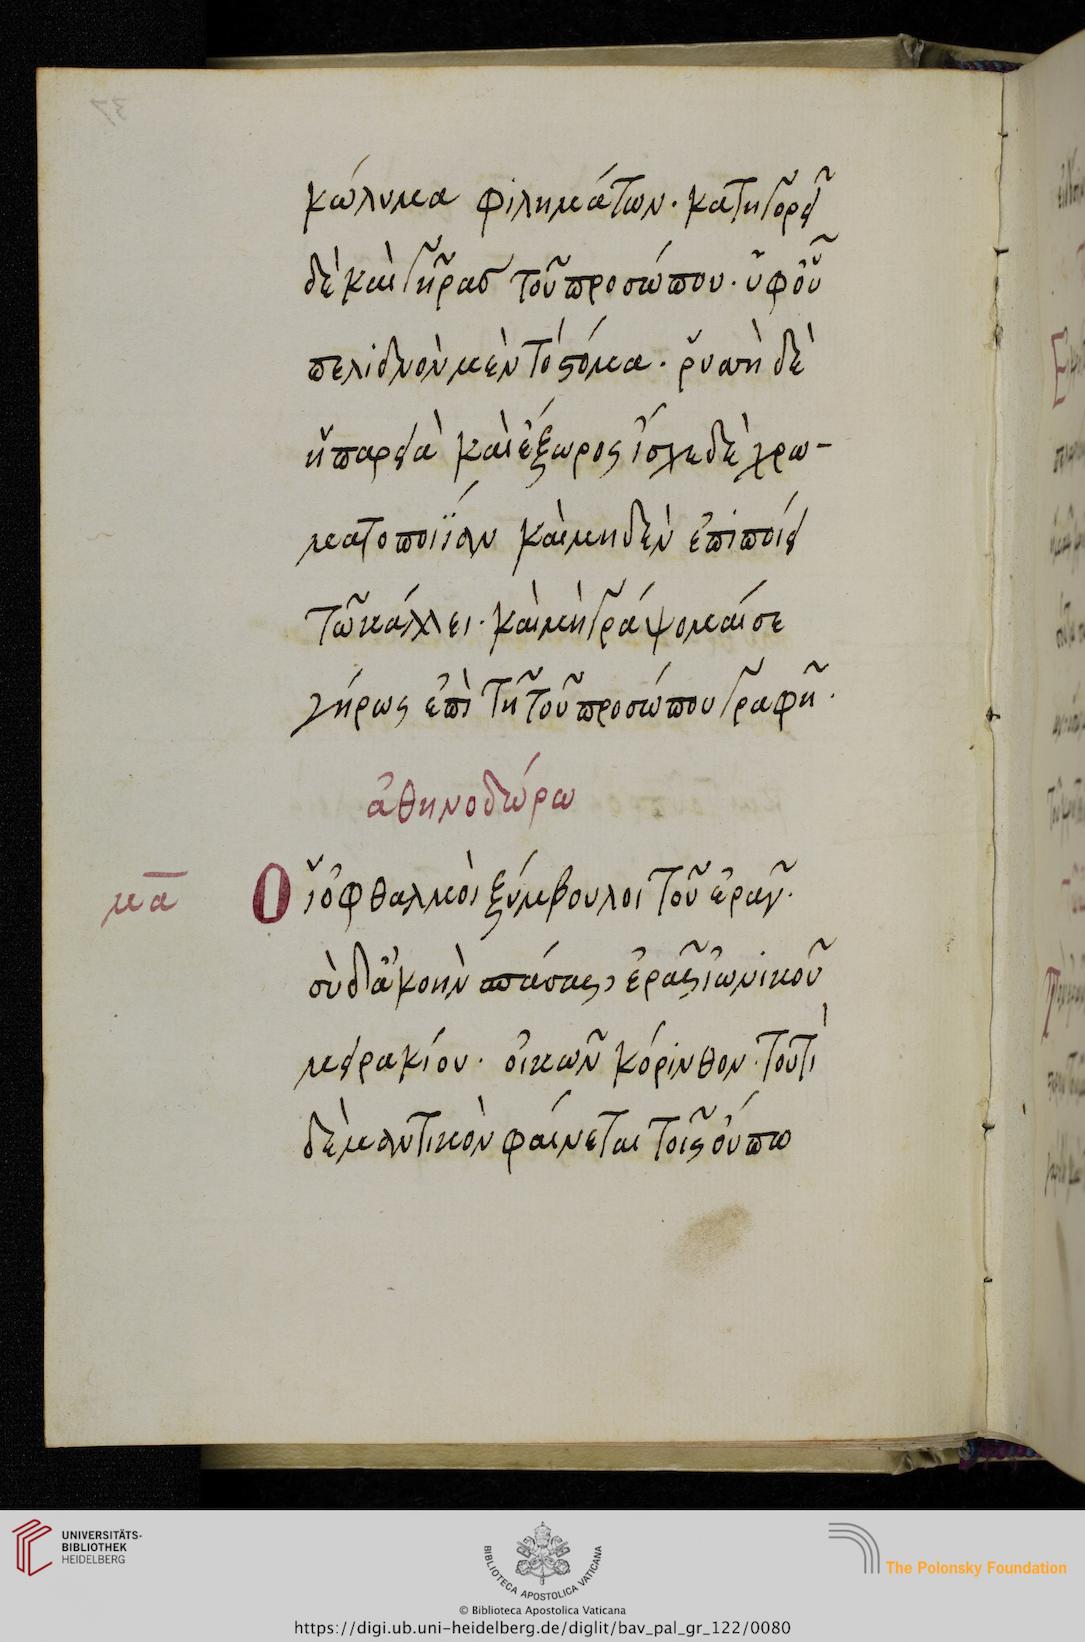 37
κώλυμα φιλημάτων· κατηγορεῖ
δὲ καὶ γῆρας τοῦ προσώπου· ὑφ' οὗ
πελιδνὸν μὲν τὸ στόμα· ῥυσὴ δὲ
ἡ παρειὰ καὶ ἔξωρος ἴσχε δὲ χρω-
ματοποιΐαν καὶ μηδὲν ἐπιποίει
τῶ κάλλει· καὶ μὴ γράψομαί σε
γήρως ἐπὶ τῆ τοῦ προσώπου γραφῆ·
ἀθηνοδώρω
μα Οἱ ὀφθαλμοὶ ξύμβουλοι τοῦ ἐρᾶν·
σὺ δ' ἀκοὴν σπάσας, ἐρᾷς ἰωνικοῦ
μειρακίου· οἰκῶν κόρινθον· τουτὶ
δὲ μαντικὸν φαίνεται τοῖς οὔπω
UNIVERSITÄTS-
BIBLIOTHEK
HEIDELBERG
BIBLIOTECA APOSTOLICA VATICANA
The Polonsky Foundation
© Biblioteca Apostolica Vaticana
https://digi.ub.uni-heidelberg.de/diglit/bav_pal_gr_122/0080